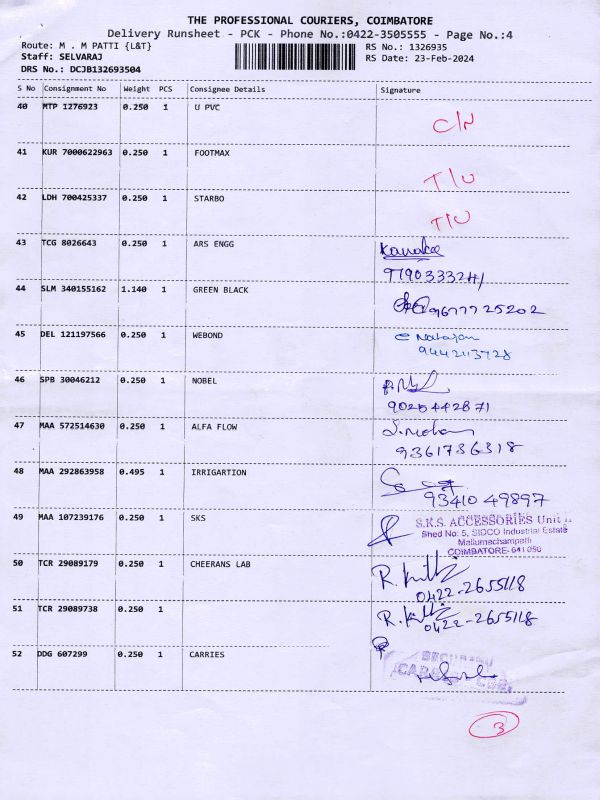 THE PROFESSIONAL COURIERS, COIMBATORE
Delivery Runsheet - PCK - Phone No.:0422-3505555 - Page No.:4
Route: M . M PATTI {L&T} RS No.: 1326935
Staff: SELVARAJ RS Date: 23-Feb-2024
DRS No.: DCJB132693504
S No Consignment No Weight PCS Consignee Details Signature
40 MTP 1276923 0.250 1 U PVC
C/N
41 KUR 7000622963 0.250 1 FOOTMAX
T/U
42 LDH 700425337 0.250 1 STARBO
T/U
43 TCG 8026643 0.250 1 ARS ENGG
44 SLM 340155162 1.140 1 GREEN BLACK
9677725202
45 DEL 121197566 0.250 1 WEBOND
Natarajan
9442113728
46 SPB 30046212 0.250 1 NOBEL
9025442871
47 MAA 572514630 0.250 1 ALFA FLOW
9361736318
48 MAA 292863958 0.495 1 IRRIGARTION
9341049897
49 MAA 107239176 0.250 1 SKS
S.K.S. ACCESSORIES Unit
Shed No: 5, SIDCO Industrial Estate
Mallumachampatti
COIMBATORE-641 050
50 TCR 29089179 0.250 1 CHEERANS LAB
0422-2655118
51 TCR 29089738 0.250 1
0422-2655118
52 DDG 607299 0.250 1 CARRIES
3